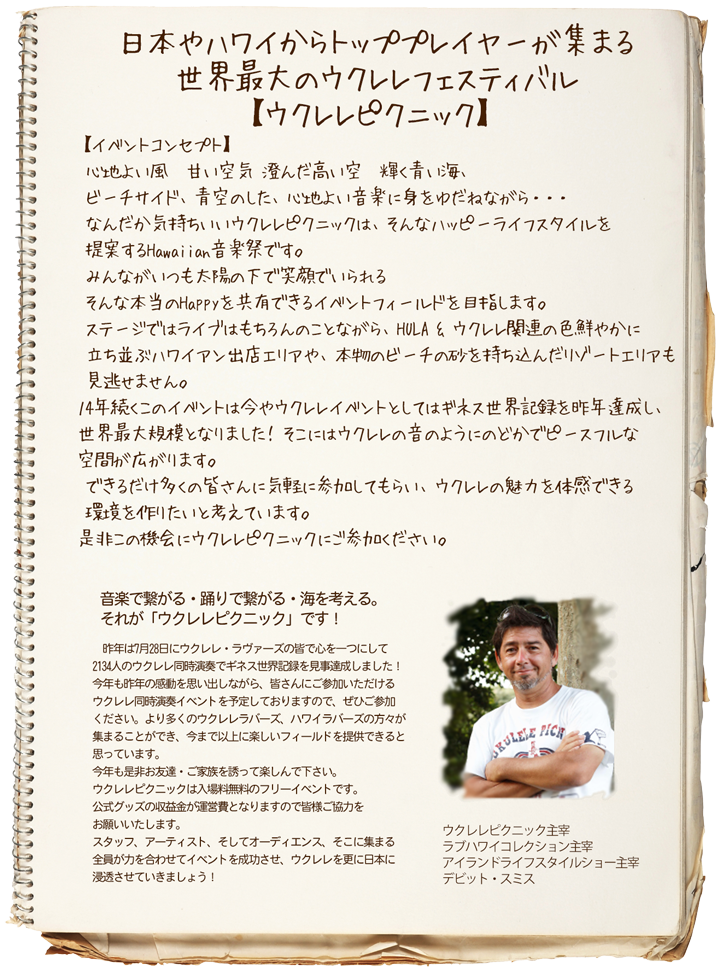 日本やハワイからトッププレイヤーが集まる
世界最大のウクレレフェスティバル
【ウクレレピクニック】
【イベントコンセプト】
心地よい風　甘い空気 澄んだ高い空　輝く青い海、
ビーチサイド、青空のした、心地よい音楽に身をゆだねながら・・・
なんだか気持ちいいウクレレピクニックは、そんなハッピーライフスタイルを
提案するHawaiian音楽祭です。
みんながいつも太陽の下で笑顔でいられる
そんな本当のHappyを共有できるイベントフィールドを目指します。
ステージではライブはもちろんのことながら、HULA & ウクレレ関連の色鮮やかに
立ち並ぶハワイアン出店エリアや、本物のビーチの砂を持ち込んだリゾートエリアも
見逃せません。
14年続くこのイベントは今やウクレレイベントとしてはギネス世界記録を昨年達成し、
世界最大規模となりました! そこにはウクレレの音のようにのどかでピースフルな
空間が広がります。
できるだけ多くの皆さんに気軽に参加してもらい、ウクレレの魅力を体感できる
環境を作りたいと考えています。
是非この機会にウクレレピクニックにご参加ください。
音楽で繋がる・踊りで繋がる・海を考える。
それが「ウクレレピクニック」です！
昨年は7月28日にウクレレ・ラヴァーズの皆で心を一つにして
2134人のウクレレ同時演奏でギネス世界記録を見事達成しました！
今年も昨年の感動を思い出しながら、皆さんにご参加いただける
ウクレレ同時演奏イベントを予定しておりますので、ぜひご参加
ください。より多くのウクレレラバーズ、ハワイラバーズの方々が
集まることができ、今まで以上に楽しいフィールドを提供できると
思っています。
今年も是非お友達・ご家族を誘って楽しんで下さい。
ウクレレピクニックは入場料無料のフリーイベントです。
公式グッズの収益金が運営費となりますので皆様ご協力を
お願いいたします。
スタッフ、アーティスト、そしてオーディエンス、そこに集まる
全員が力を合わせてイベントを成功させ、ウクレレを更に日本に
浸透させていきましょう！
UKULELE PICN
ウクレレピクニック主宰
ラブハワイコレクション主宰
アイランドライフスタイルショー主宰
デビット・スミス